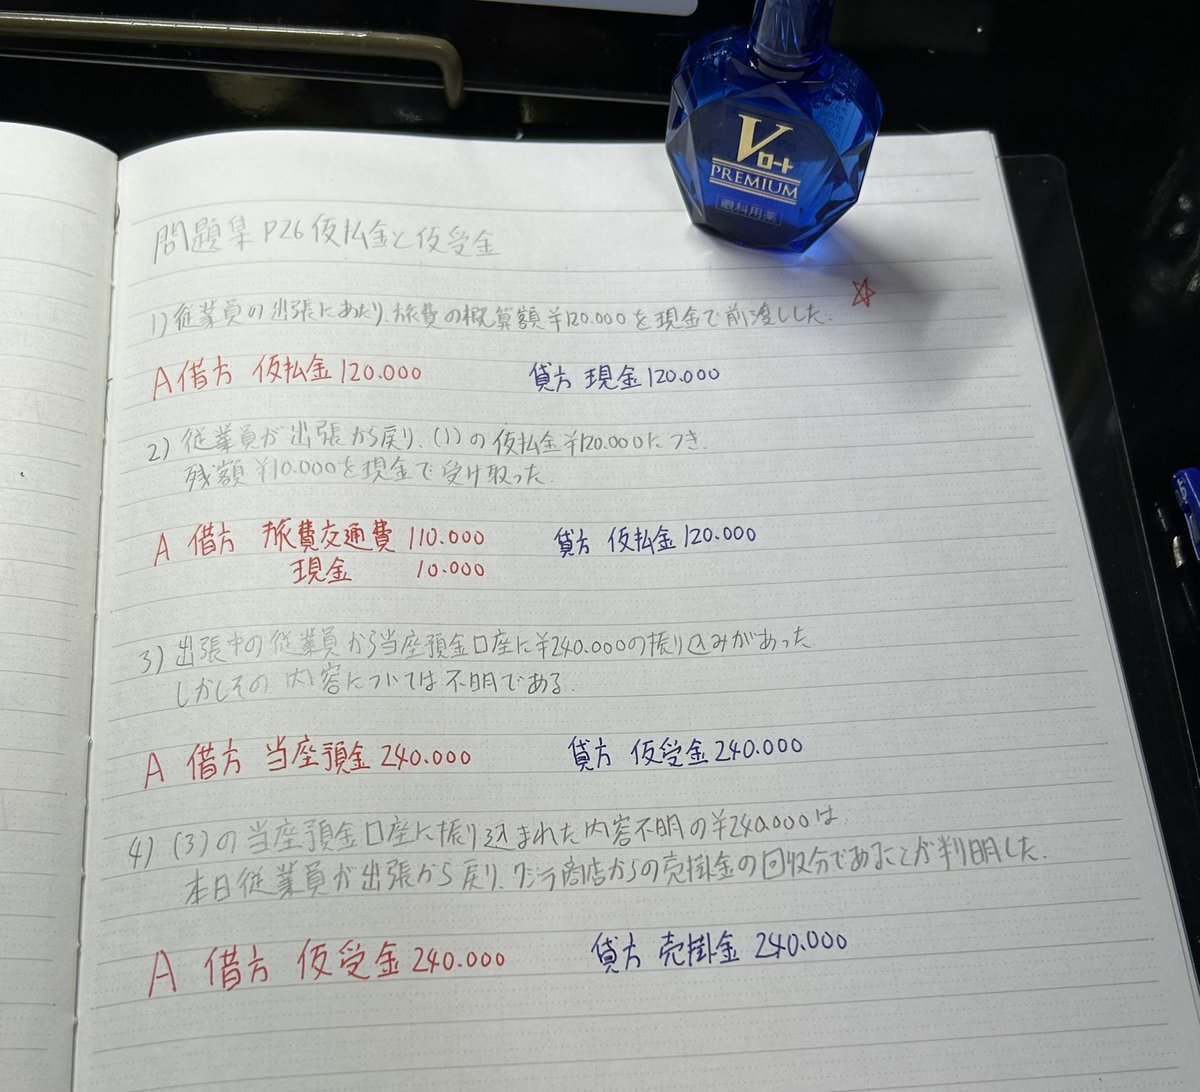 Vロート
PREMIUM
眼科用薬
問題集 P26 仮払金と仮受金
1) 従業員の出張にあたり、旅費の概算額¥120.000を現金で前渡しした.
A 借方 仮払金 120.000 貸方 現金 120.000
2) 従業員が出張から戻り、(1)の仮払金¥120.000につき.
残額¥10.000を現金で受け取った.
A 借方 旅費交通費 110.000 貸方 仮払金 120.000
現金 10.000
3) 出張中の従業員から当座預金口座に¥240.000の振り込みがあった
しかしその内容については不明である.
A 借方 当座預金 240.000 貸方 仮受金 240.000
4) (3)の当座預金口座に振り込まれた内容不明の¥240.000は.
本日従業員が出張から戻り、ワジラ商店からの売掛金の回収分であることが判明した.
A 借方 仮受金 240.000 貸方 売掛金 240.000